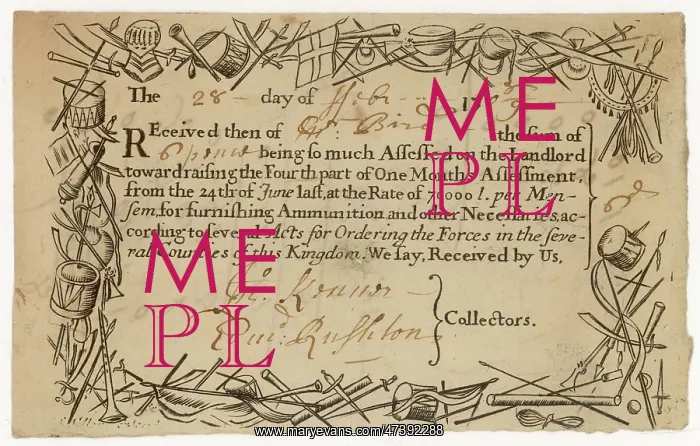 The 28 day of Feb:
Received then of Mr: Bird the sum of
6 pence being so much Assessed on the Landlord
toward raising the Fourth part of One Months Assessment,
from the 24th of June last, at the Rate of 70000 l. per Men-
sem, for furnishing Ammunition and other Necessaries, ac-
cording to several Acts for Ordering the Forces in the seve-
ral Counties of this Kingdom. We say, Received by Us,
6d
Kenner
Rushton
Collectors.
ME
PL
ME
PL
www.maryevans.com/47392288